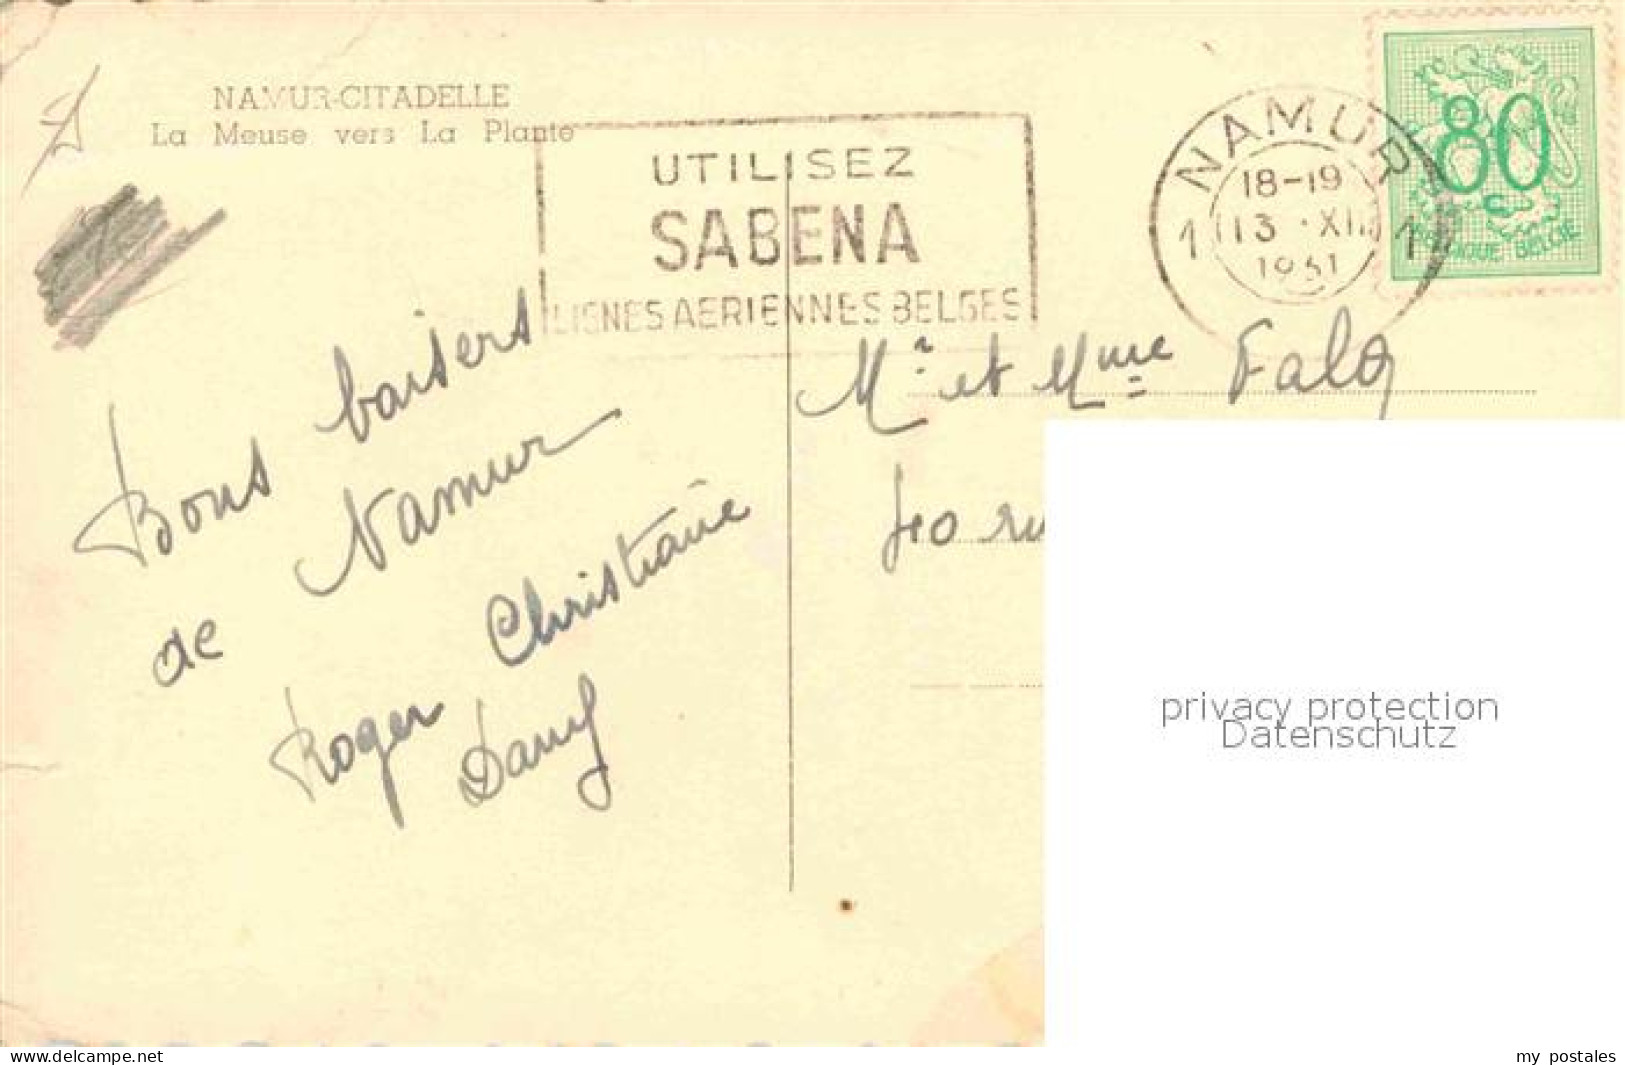 NAMUR-CITADELLE
La Meuse vers La Plante
UTILISEZ
SABENA
LIGNES AERIENNES BELGES
NAMUR
18-19
13 · XII
1 1
80
BELGIQUE BELGIE
Bons baisers
de Namur
Roger Christiane
Dany
Mr et Mme Falq
privacy protection
Datenschutz
www.delcampe.net
my_postales